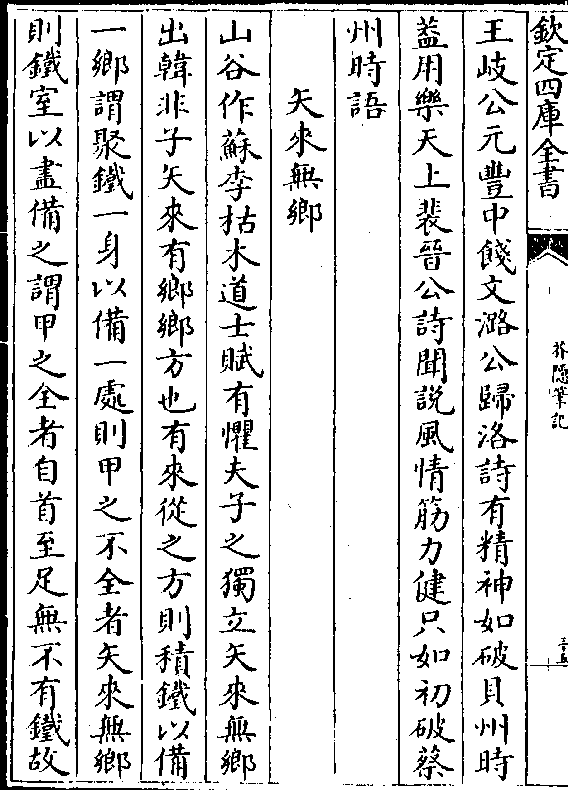 欽定四庫全書
芥隱筆記
王岐公元豐中餞文潞公歸洛詩有精神如破貝州時
葢用樂天上裴晉公詩聞說風情筋力健只如初破蔡
州時語
矢來無鄉
山谷作蘇李枯木道士賦有懼夫子之獨立矢來無鄉
出韓非子矢來有鄉鄉方也有來從之方則積鐵以備
一鄉謂聚鐵一身以備一處則甲之不全者矢來無鄉
則鐵室以盡備之謂甲之全者自首至足無不有鐵故